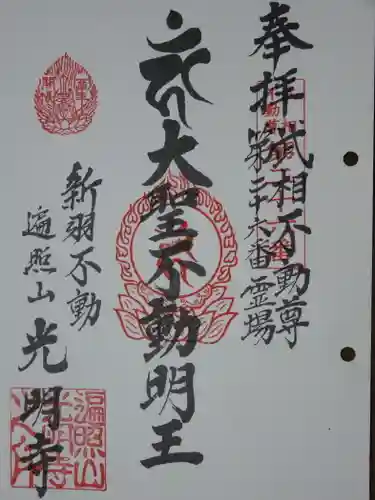 奉拝
武相不動尊
第二十六番霊場
大聖不動明王
新羽不動
遍照山
光明寺
遍照山
光明寺